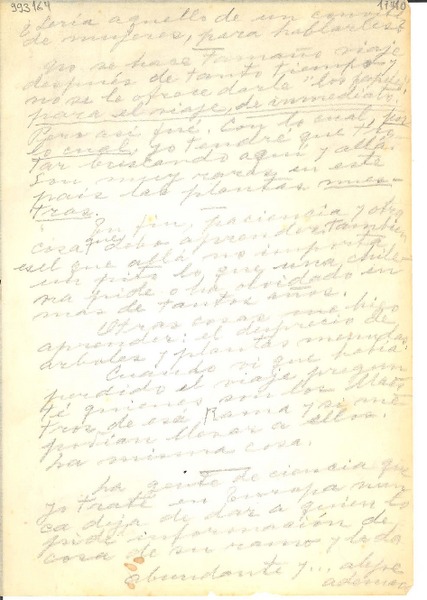 993164
17910
de mujeres, para hablarles
No se hace tamaño viaje
después de tanto tiempo y
no se le ofrece darle "los
para el viaje, de inmediato.
Pero así fué. Con lo cual, por
lo cual, yo tendré que
tar buscando aquí y allá.
Son muy raras en este
país las plantas nues-
tras.
En fin, paciencia y otra
cosa que debo aprender también
es el que allá no importa
un pito lo que una chile-
na pide o ha olvidado en
más de tantos años.
Otras cosas me hizo
aprender: el desprecio de
árboles y plantas menudas.
Cuando vi que había
perdido el viaje pregun
té quienes son los Maes
tros de ese Rama y si me
podían llevar a ellos.
La misma cosa.
La gente de ciencia que
yo traté en Europa nun
ca deja de dar a quien lo
pide información de
cosa de su ramo y la da
abundante y...
además